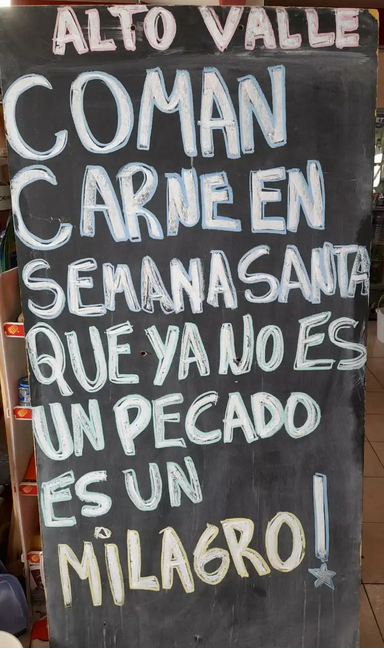 ALTO VALLE
COMAN
CARNE EN
SEMANA SANTA
QUE YA NO ES
UN PECADO
ES UN
MILAGRO!